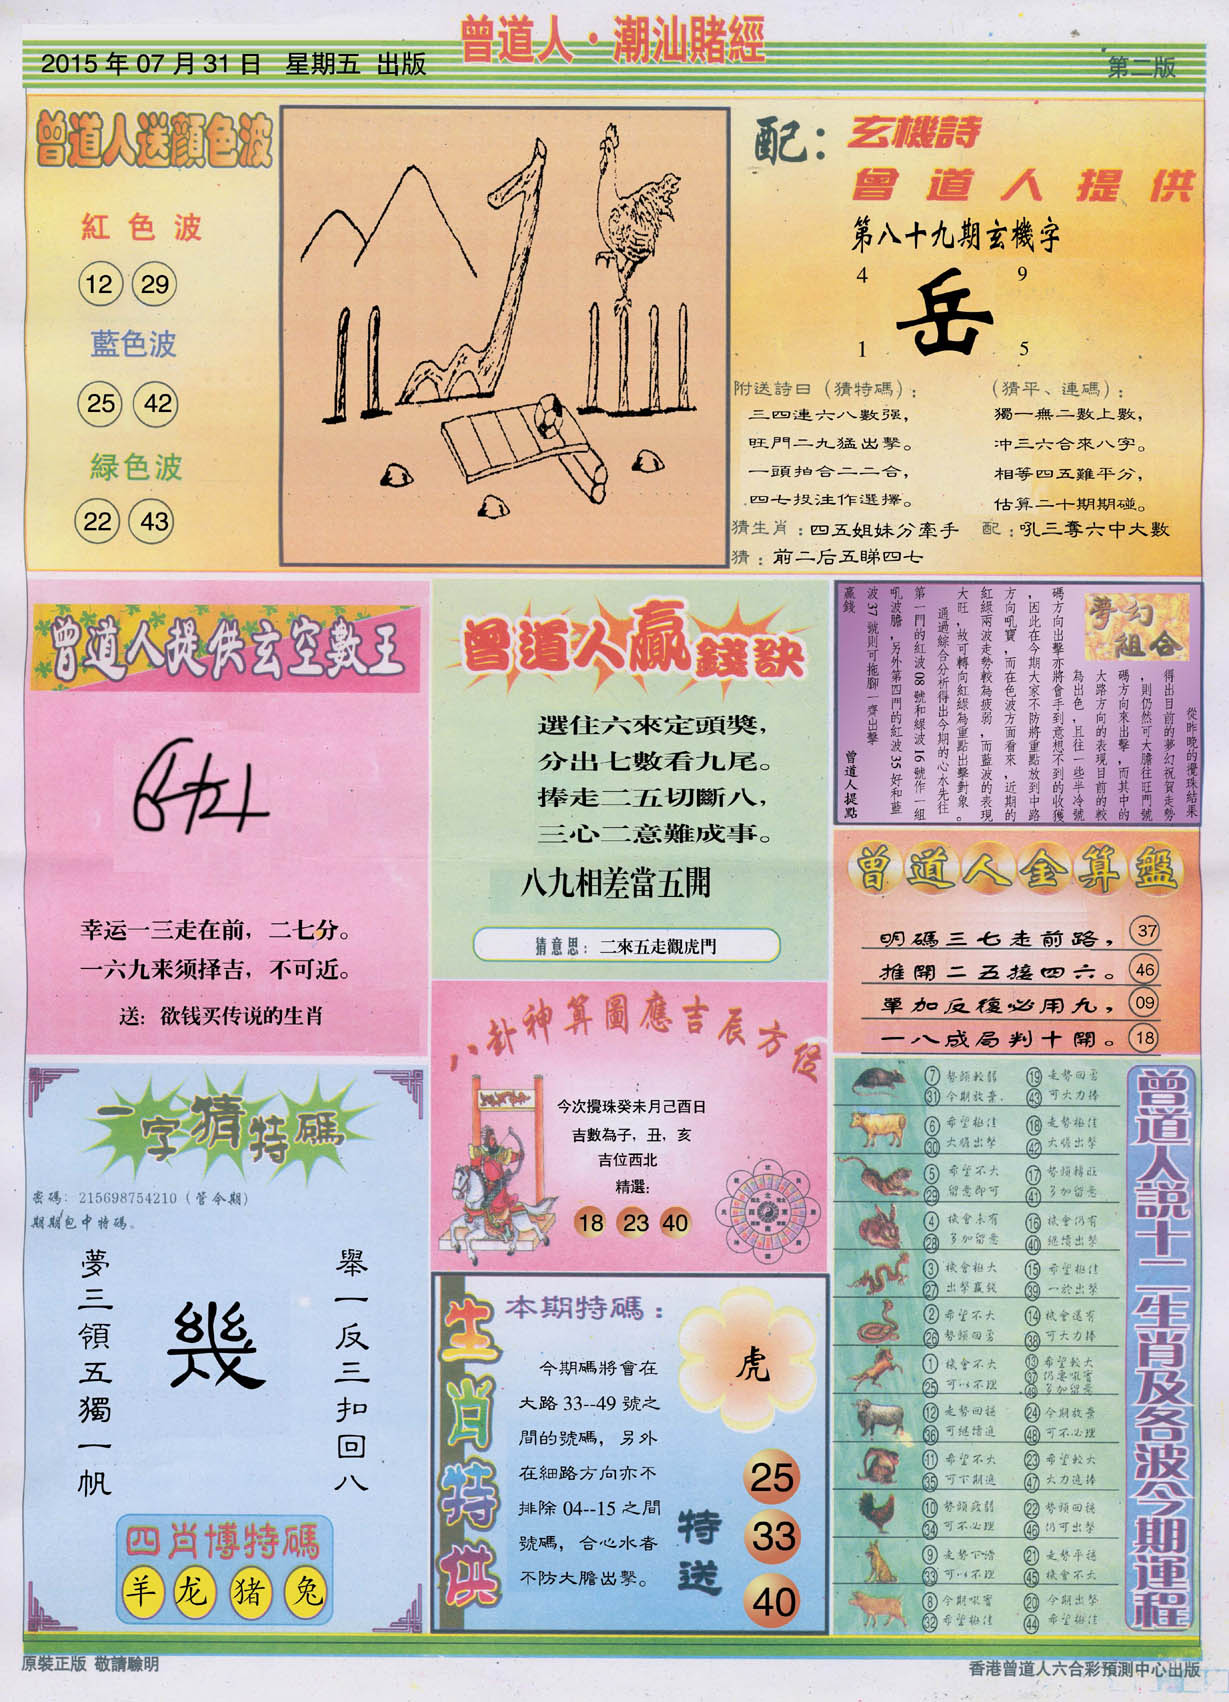 曾道人·潮汕賭經
2015 年 07 月 31 日 星期五 出版
第二版
曾道人送顏色波
紅色波
12 29
藍色波
25 42
緑色波
22 43
配：玄機詩
曾道人提供
第八十九期玄機字
4 9
岳
1 5
附送詩曰（猜特碼）：
三四連六八數强，
旺門二九猛出擊。
一頭拍合二二合，
四七投注作選擇。
（猜平、連碼）：
獨一無二數上數，
冲三六合來八字。
相等四五難平分，
估算二十期期碰。
猜生肖：四五姐妹分牽手
配：吼三奪六中大數
猜：前二后五睇四七
曾道人提供玄空數王
幸运一三走在前，二七分。
一六九来须择吉，不可近。
送：欲钱买传说的生肖
曾道人贏錢訣
選住六來定頭獎，
分出七數看九尾。
捧走二五切斷八，
三心二意難成事。
八九相差當五開
猜意思：二來五走觀虎門
夢幻組合
從昨晚的攪珠結果
得出目前的夢幻祝賀走勢
，則仍然可大膽往旺門號
碼方向來出擊，而其中的
大路方向的表現目前的較
為出色，且往一些半冷號
碼方向出擊亦將會手到意想不到的收獲
，因此在今期大家不防將重點放到中路
方向吼寶，而在色波方面看來，近期的
紅綠兩波走勢較為疲弱，而藍波的表現
大旺，故可轉向紅綠為重點出擊對象。
通過綜合分析得出今期的心水先往
第一門的紅波 08 號和緑波 16 號作一組
吼波膽，另外第四門的紅波 35 好和藍
波 37 號則可拖腳一齊出擊
贏錢
曾道人提點
曾道人金算盤
明碼三七走前路， 37
推開二五接四六。 46
單加反復必用九， 09
一八成局判十開。 18
八卦神算圖應吉辰方位
今次攪珠癸未月己酉日
吉數為子，丑，亥
吉位西北
精選：
18 23 40
一字猜特碼
密碼：215698754210（管今期）
期期包中特碼。
舉一反三扣回八
幾
夢三領五獨一帆
四肖博特碼
羊 龙 猪 兔
生肖特供
本期特碼：
虎
今期碼將會在
大路 33--49 號之
間的號碼，另外
在細路方向亦不
排除 04--15 之間
號碼，合心水者
不防大膽出擊。
特送
25
33
40
曾道人説十二生肖及各波今期運程
7 勢頭較弱 19 走勢回勇
31 今期放棄 43 可大力捧
6 希望極佳 18 走勢極佳
30 大膽出擊 42 大膽出擊
5 希望不大 17 勢頭轉旺
29 留意即可 41 多加留意
4 機會未有 16 機會仍有
28 多加留意 40 繼續出擊
3 機會極大 15 希望極佳
27 出擊贏錢 39 一於出擊
2 希望不大 14 機會還有
26 勢頭回勇 38 可大力捧
1 機會不大 13 希望較大
25 可以不理 37 仍要吸實
49 多加留意
12 走勢回穩 24 今期放棄
36 可繼續追 48 可不必理
11 希望不大 23 希望較大
35 可下期追 47 大力追捧
10 勢頭疲弱 22 勢頭回穩
34 可不必理 46 仍可出擊
9 走勢下滑 21 走勢平穩
33 可以不理 45 機會不大
8 今期吸實 20 今期出擊
32 希望極佳 44 希望極佳
原裝正版 敬請驗明
香港曾道人六合彩預測中心出版